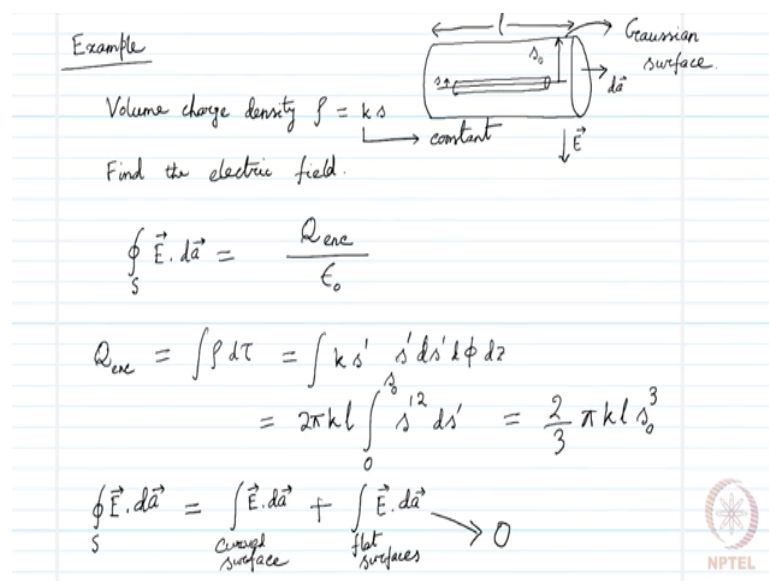 Example
l
Gaussian
surface.
s₀
s
da⃗
Volume charge density ρ = k s
constant
E⃗
Find the electric field.
∮_S E⃗ . da⃗ = Q_enc / ϵ₀
Q_enc = ∫ ρ dτ = ∫ k s' s' ds' dϕ dz
= 2πkl ∫₀^{s₀} s'² ds' = 2/3 π k l s₀³
∮_S E⃗ . da⃗ = ∫_{curved surface} E⃗ . da⃗ + ∫_{flat surfaces} E⃗ . da⃗ → 0
NPTEL